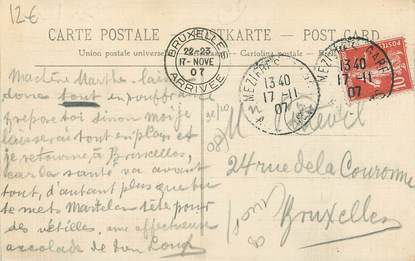 12€
CARTE POSTALE POSTKARTE - POST CARD
Union postale universelle Cartolina postale
BRUXELLES
22-23
17-NOVE
07
ARRIVÉE
MEZIERES
13 40
17-11
07
MEZIERES GARE
13 40
17-11
07
10
Ma chère Marthe
donc tout en
repose toi sinon moi je
laisserai tout en plan et
je retourne à Bruxelles,
car la santé va avant
tout, d'autant plus que tu
te mets Martel en tête pour
des vétilles, une affectueuse
accolade de ton Loup
24 rue de la Couronne
Bruxelles